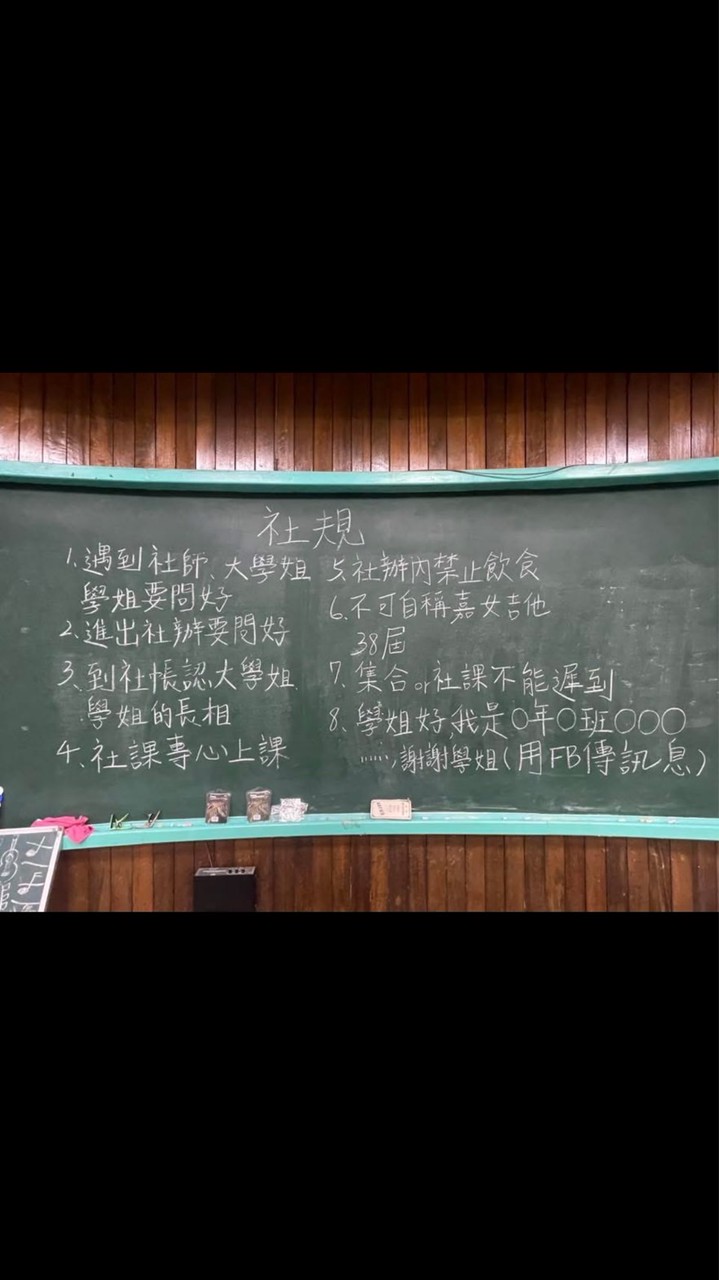 社規
1、遇到社師、大學姐
學姐要問好
2、進出社辦要問好
3、到社帳認大學姐
學姐的長相
4、社課專心上課
5、社辦內禁止飲食
6、不可自稱嘉女吉他
38屆
7、集合or社課不能遲到
8、學姐好,我是○年○班○○○
……,謝謝學姐(用FB傳訊息)